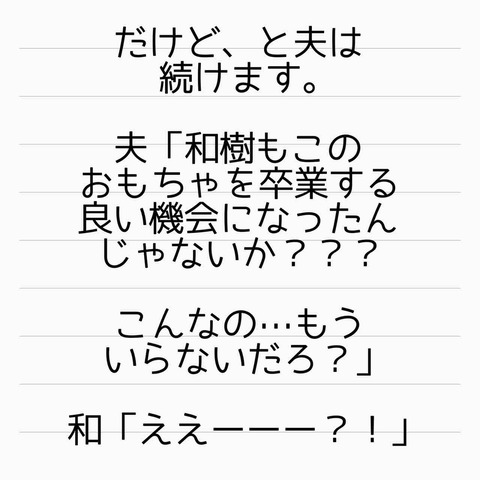 だけど、と夫は
続けます。
夫「和樹もこの
おもちゃを卒業する
良い機会になったん
じゃないか？？？
こんなの…もう
いらないだろ？」
和「ええーーー？！」